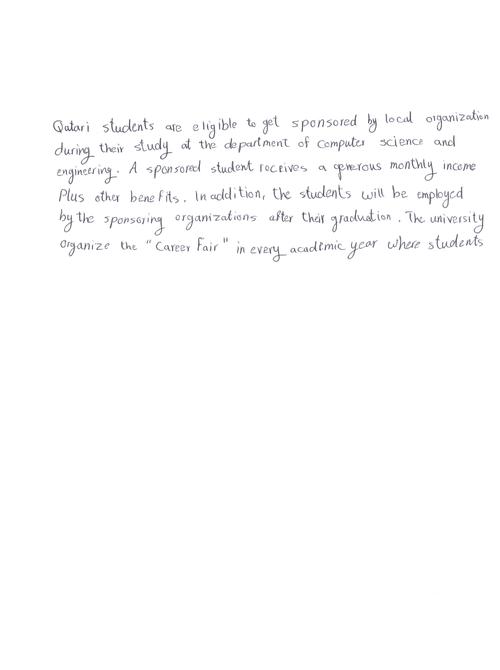 Qatari students are eligible to get sponsored by local organization
during their study at the department of Computer science and
engineering. A sponsored student receives a generous monthly income
Plus other benefits. In addition, the students will be employed
by the sponsoring organizations after their graduation. The university
organize the "Career Fair" in every academic year where students